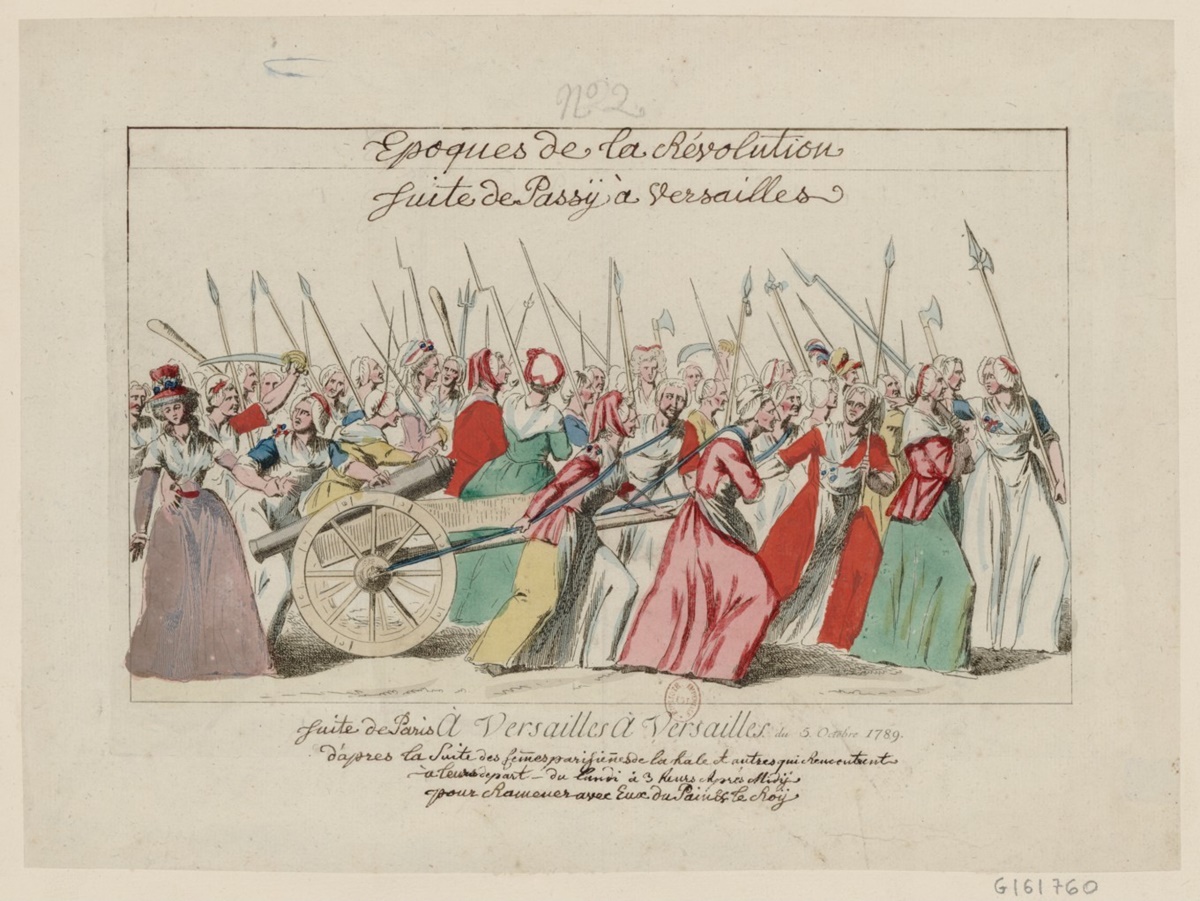 Nº 2
Epoques de la Révolution
suite de Passÿ à Versailles
suite de Paris À Versailles À Versailles du 5 Octobre 1789.
d'apres la Suite des femes parisiенes de la hale et autres qui Rencontrent
à leurs depart du lundi à 3 heurs Après Midÿ
pour Ramener avec Eux du Pain & le Roÿ
G161760